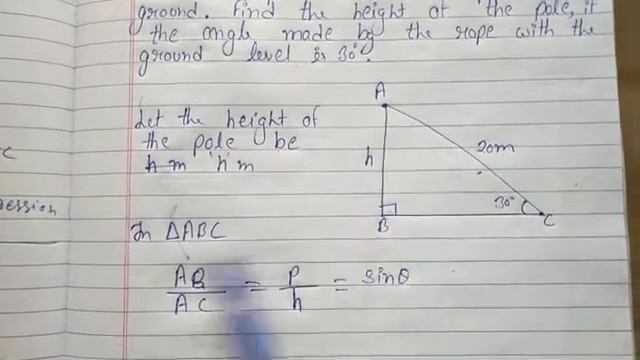 ground. Find the height of the pole, if
the angle made by the rope with the
ground level is 30°.
Let the height of
the pole be
h m 'h' m
A
h
20m
30°
B
C
In ΔABC
AB/AC = P/h = sinθ
c
ession